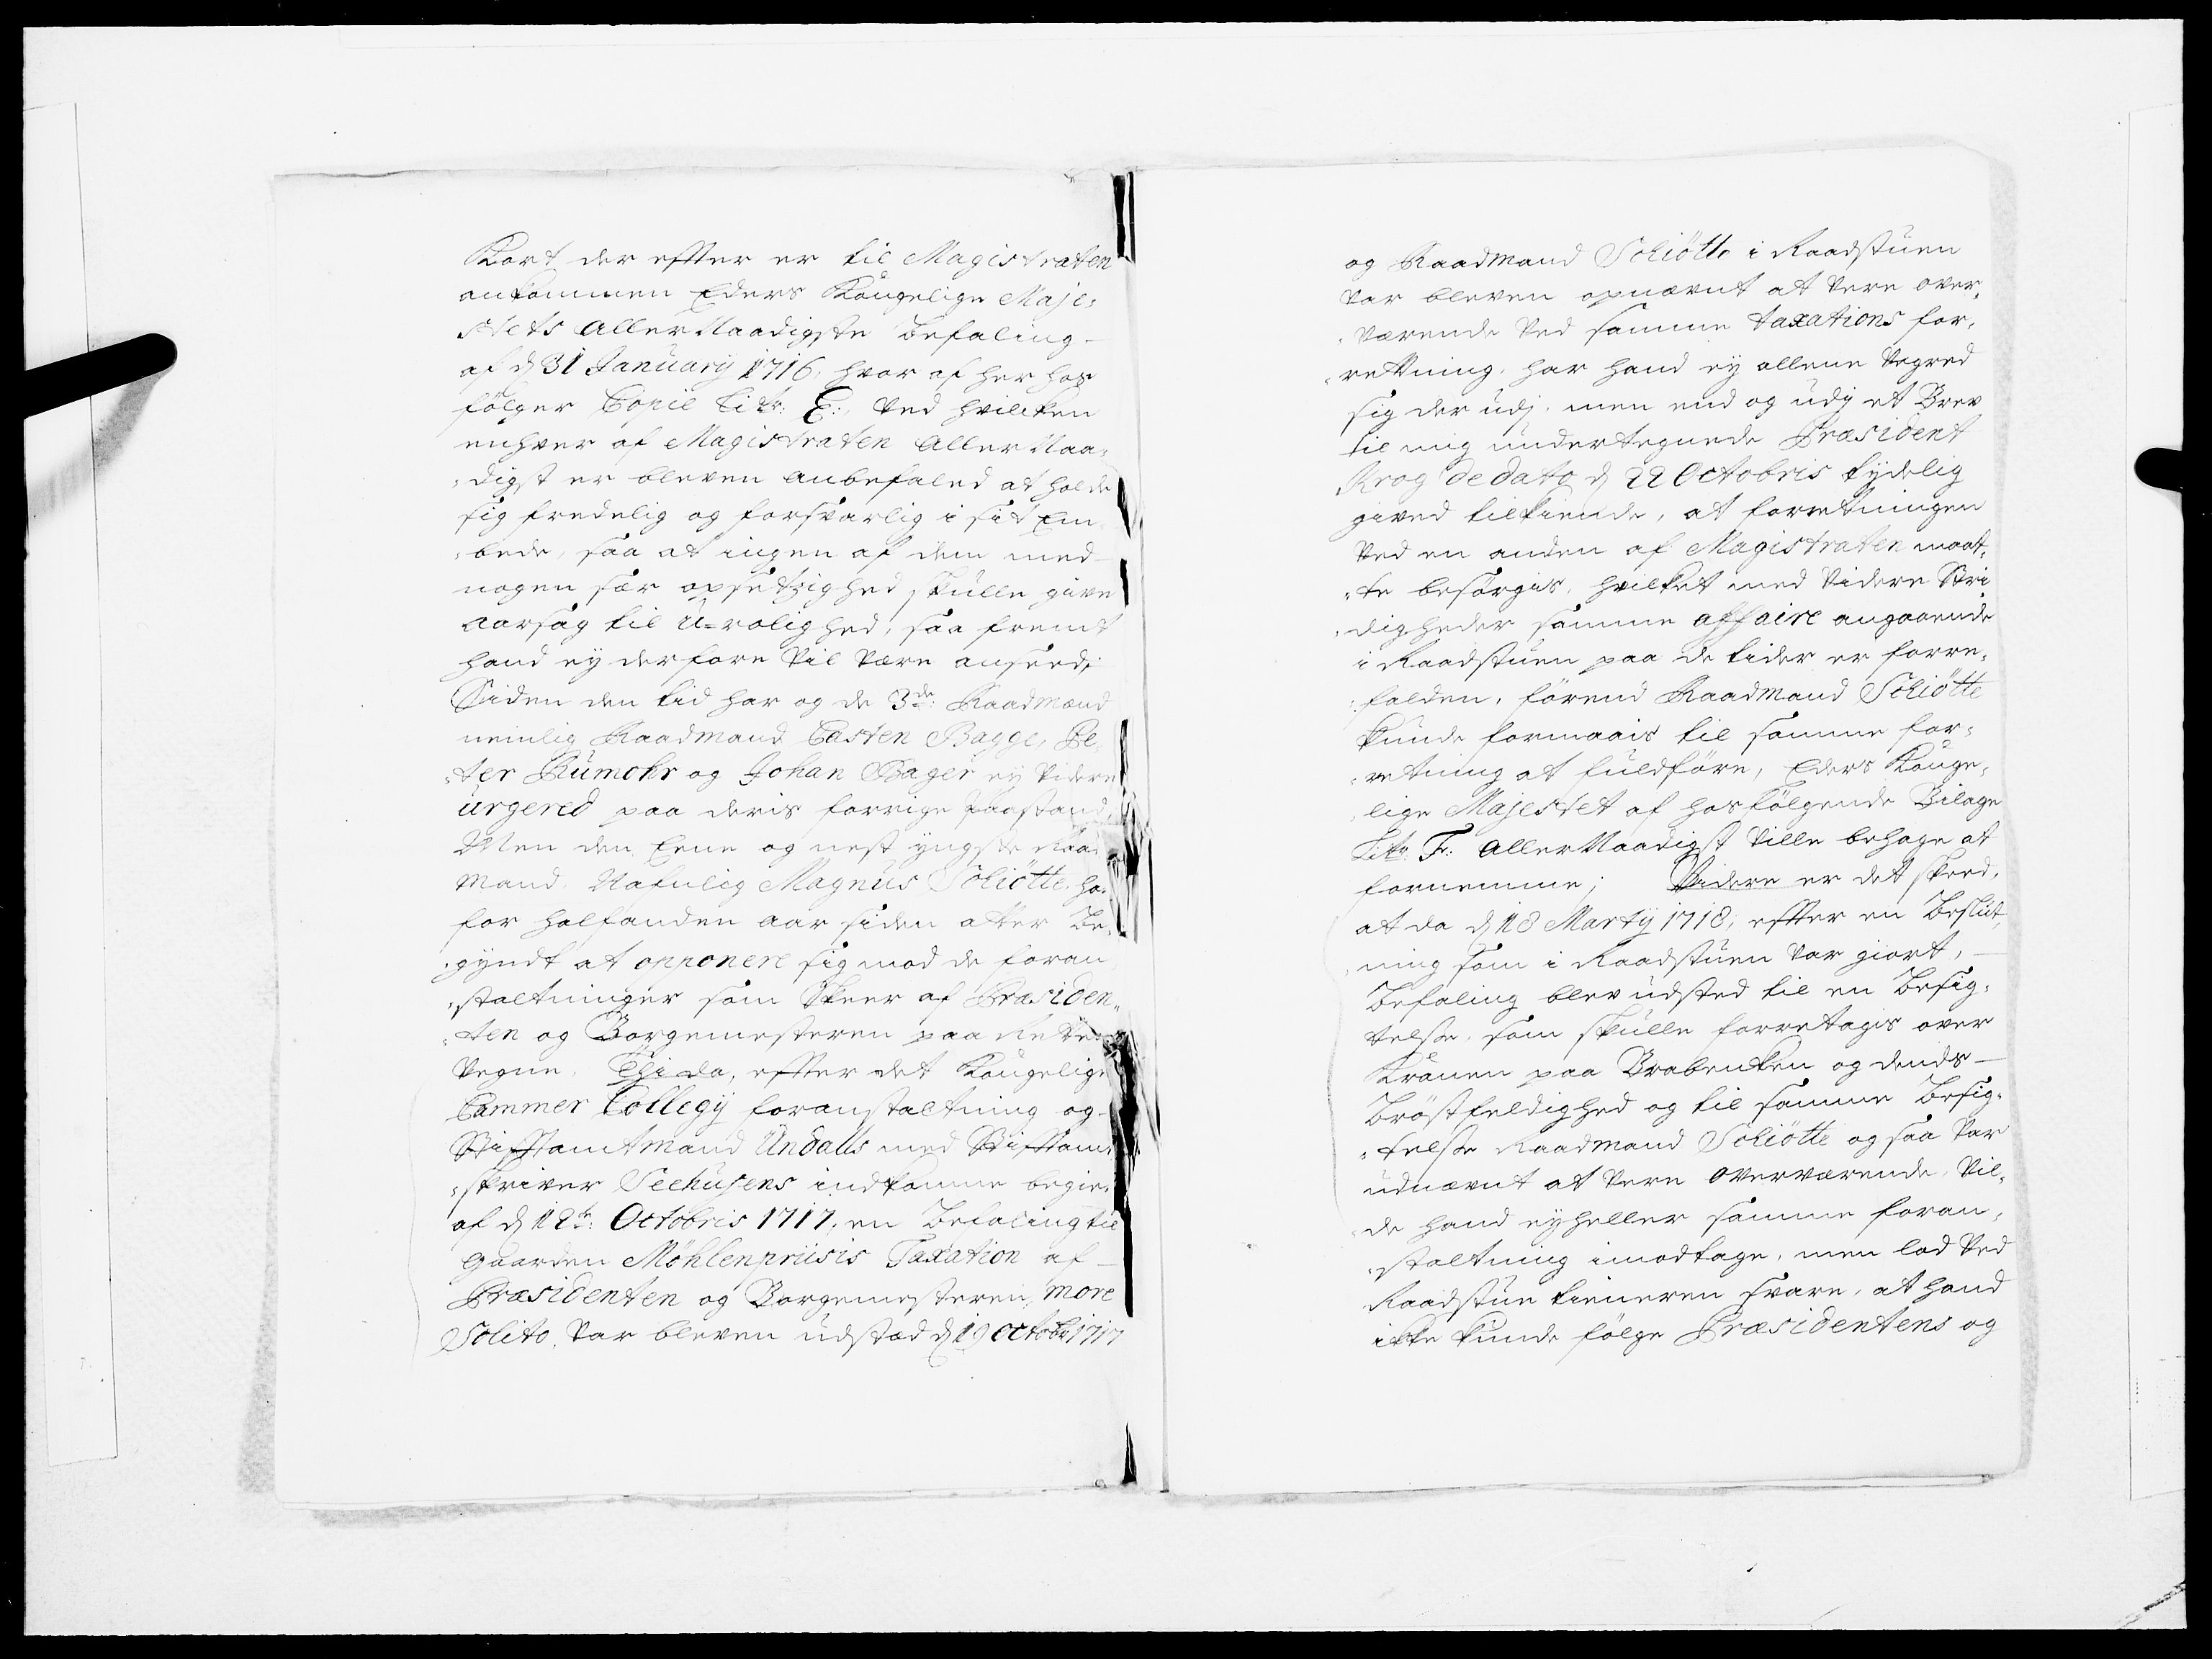 Kort der efter er til Magistraten
ankommen Eders Kongelige Maje-
stets Allernaadigste Befaling
af d 31 January 1716, hvor af her hos
følger Copie Litr: E: ved hvilcken
enhver af Magistraten Aller Naa-
digst er bleven anbefaled at holde
sig fredelig og forsvarlig i sit Em-
bede, saa at ingen af dem med
nogen sær opsetzighed skulle give
aarsag til U-rolighed, saa fremt
hand ey derfore vil være anseed;
Siden den tid har og de 3de: Raadmænd
nemlig Raadmand Casten Bagge, Pe-
ter Rumohr og Johan Bager ey videre
urgered paa deris forrige Paastand,
Men den Eene og nest yngste Raad
mand, Nafnlig Magnus Schiøtte, ha
for halfanden aar siden atter Be-
gyndt at opponere sig mod de foran
staltninger som skeer af Præsiden-
ten og Borgemesteren paa Rettens
vegne. Thi da, efter det Kongelige
Cammer Collegy foranstaltning og
Stifftamtmand Undalls med Stifftamt
skriver Seehusens indkomne begier
af d 12te: Octobris 1717, en Befaling til
gaarden Møhlenpriisis Taxation af
Præsidenten og Borgemesteren, more
Solito, var bleven udstæd d 19 Octobr 1717
og Raadmand Schiøtte i Raadstuen
var bleven opnævnt at være over-
værende ved samme taxations for-
rettning, har hand ey allene vegred
sig der udj, men end og udj et Brev
til mig undertegnede Præsident
Krog de dato d 22 Octobris tydelig
gived tilkiende, at forretningen
ved en anden af Magistraten maat-
te besørgis, hvilket med videre Stri
digheder samme affaire angaaende
i Raadstuen paa de tider er forre-
falden, førend Raadmand Schiøtte
kunde formaais til samme for-
retning at fuldføre, Eders Konge-
lige Majestet af hosfølgende Bilage
Litr: F: Aller Naadigst ville behage at
fornemme; Videre er det skeed,
at da d 18 Marty 1718, efter en Beslut-
ning som i Raadstuen var giort,
Befaling blev udsted til en Besig-
telse, som skulle forretages over
Kranen paa Brabencken og dends
Brøstfeldighed og til samme Besig-
telse Raadmand Schiøtte og saa var
udnævnt at være overværende, vil-
de hand ey heller samme foran-
staltning imodtage, men lod ved
Raadstue tieneren svare, at hand
ikke kunde følge Præsidentens og